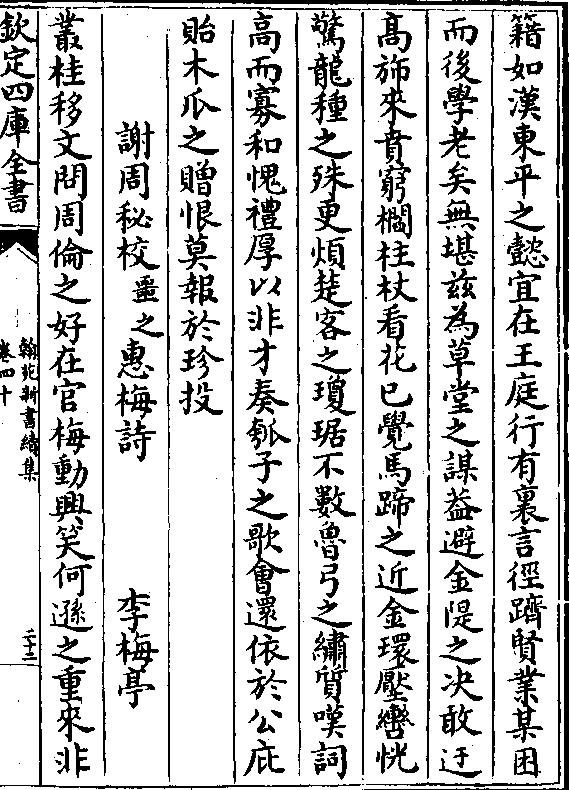 籍如漢東平之懿宜在王庭行有裏言徑躋賢業某困
而後學老矣無堪兹為草堂之謀葢避金隄之决敢迂
髙斾來賁窮櫩柱杖看花已覺馬蹄之近金環壓轡恍
驚龍種之殊更煩楚客之瓊琚不數魯弓之繡質嘆詞
高而寡和愧禮厚以非才奏瓠子之歌會還依於公庇
貽木𤓰之贈恨莫報於珍投
謝周秘校噩之惠梅詩 李梅亭
叢桂移文問周倫之好在官梅動興笑何遜之重來非
欽定四庫全書
翰苑新書續集
卷四十
二十二